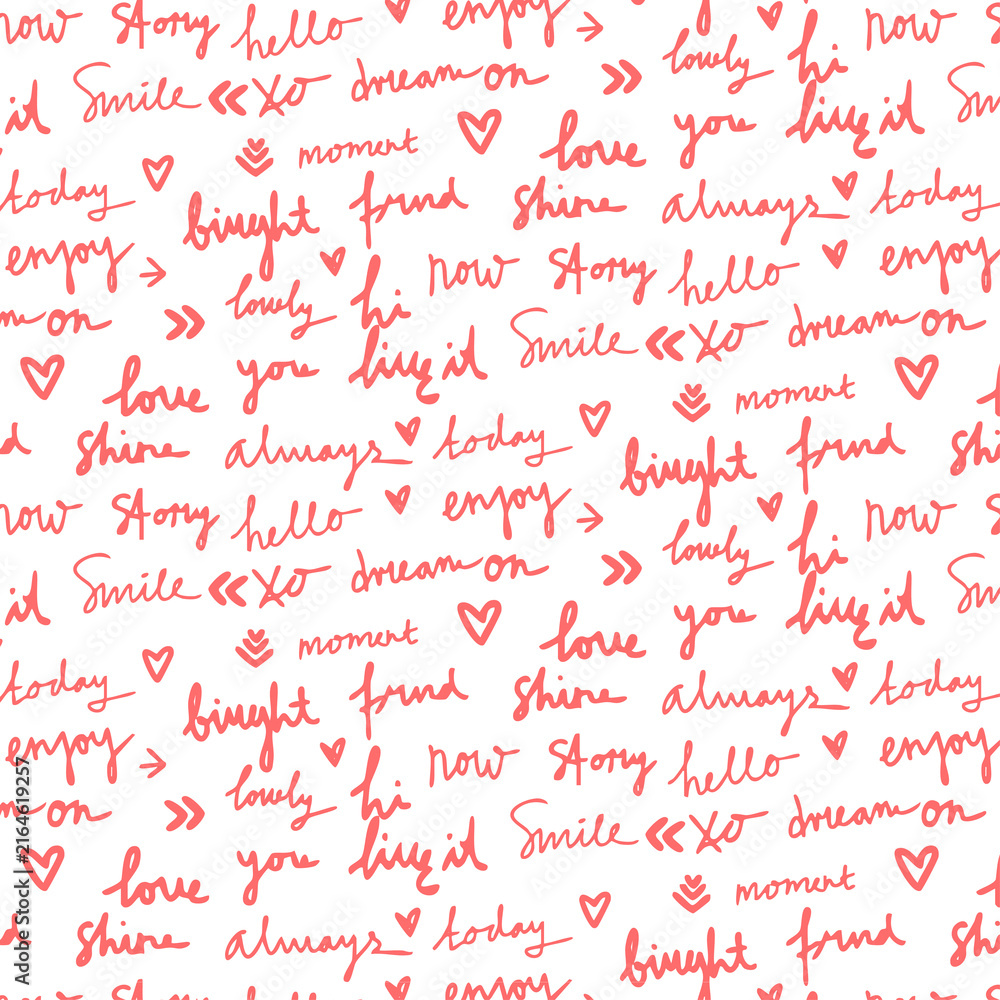 now story hello enjoy lovely hi now
it smile xo dream on live it
moment love you
today biught frnd shine always today
enjoy lovely hi now story hello enjoy
on smile xo dream on
love you live it moment
shine always today biught frnd
now story hello enjoy lovely hi now
it smile xo dream on live it
moment love you
today biught frnd shine always today
enjoy lovely hi now story hello enjoy
on smile xo dream on
love you live it moment
shine always today biught frnd
now story hello enjoy
Adobe Stock | #2164619257